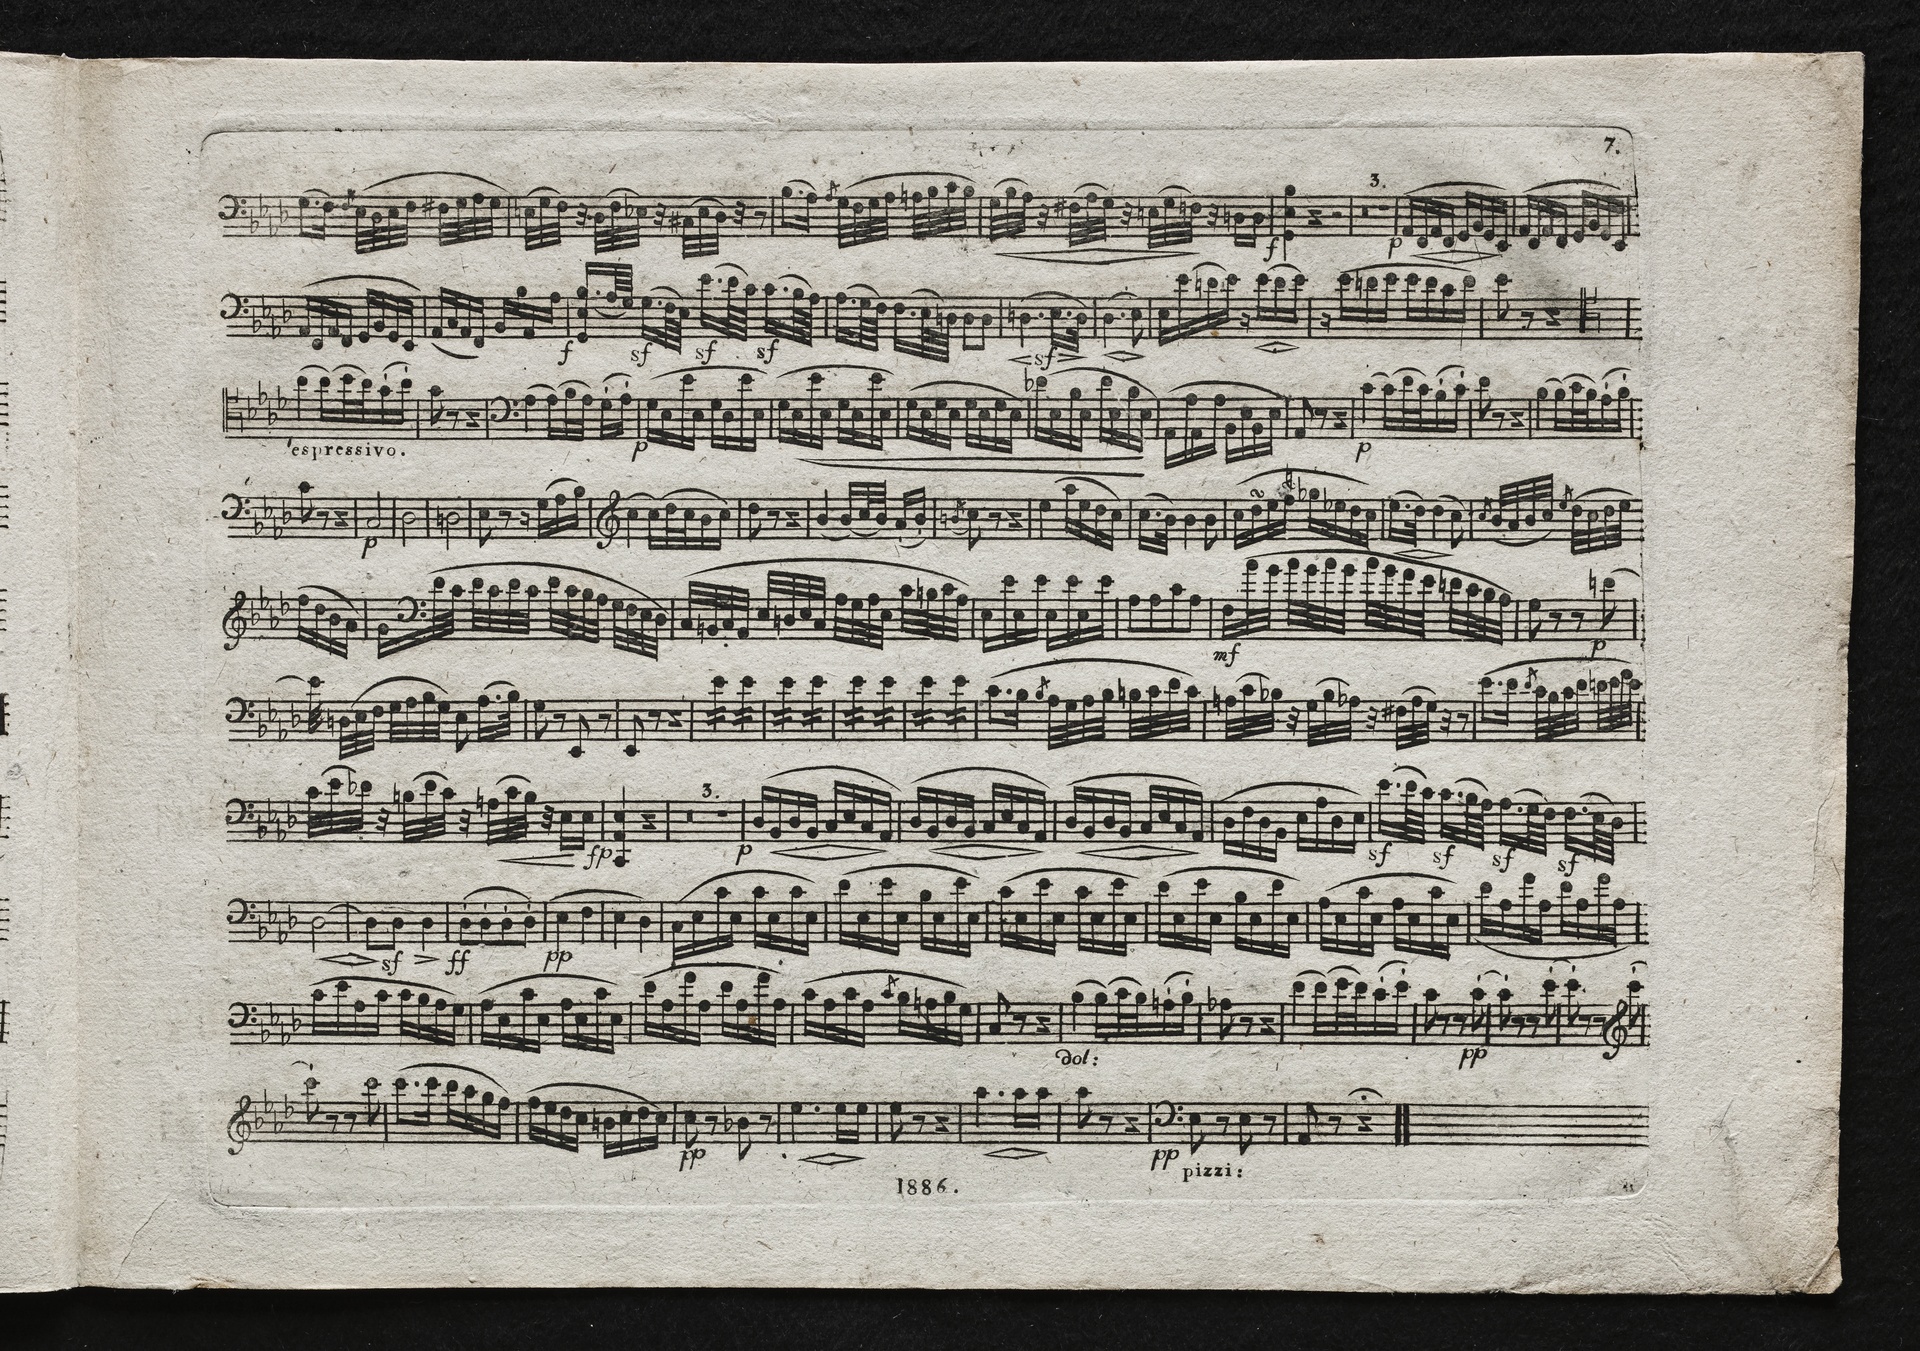 7.
3.
f p
f sf sf sf <sf>
espressivo. p p
p
mf p
3.
fp p sf sf sf sf
sf > ff pp
dol: pp
pp pp pizzi:
1886.